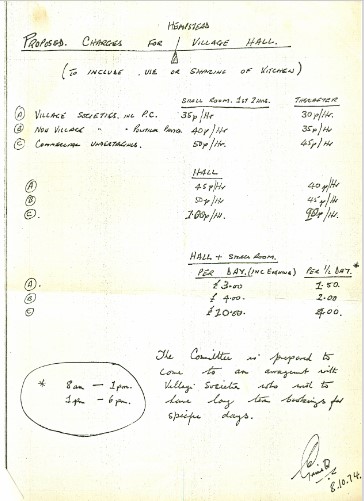 HEMPSTEAD
PROPOSED. CHARGES FOR VILLAGE HALL.
(TO INCLUDE. USE OR SHARING OF KITCHEN)
SMALL ROOM. 1ST 2HRS. THEREAFTER
(A) VILLAGE SOCIETIES. INC P.C. 35p/Hr 30p/Hr
(B) NON VILLAGE " " 40p/Hr 35p/Hr
(C) COMMERCIAL UNDERTAKINGS. 50p/Hr 45p/Hr
HALL
(A) 45p/Hr 40p/Hr
(B) 50p/Hr 45p/Hr
(C). 1.00p/Hr. 90p/Hr.
HALL + SMALL ROOM.
PER DAY. (INC EVENING) PER 1/2 DAY. *
(A). £3.00 1.50.
(B) £4.00. 2.00
(C) £20.00. 4.00.
The Committee is prepared to
come to an arrangement with
Village Societies who wish to
have long term bookings for
specific days.
* 8am — 1pm.
1pm — 6pm.
8.10.74.